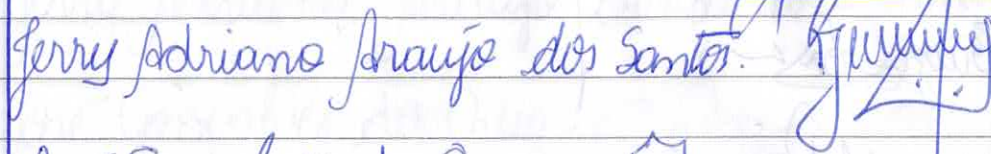 Jerry Adriano Araujo dos Santos.